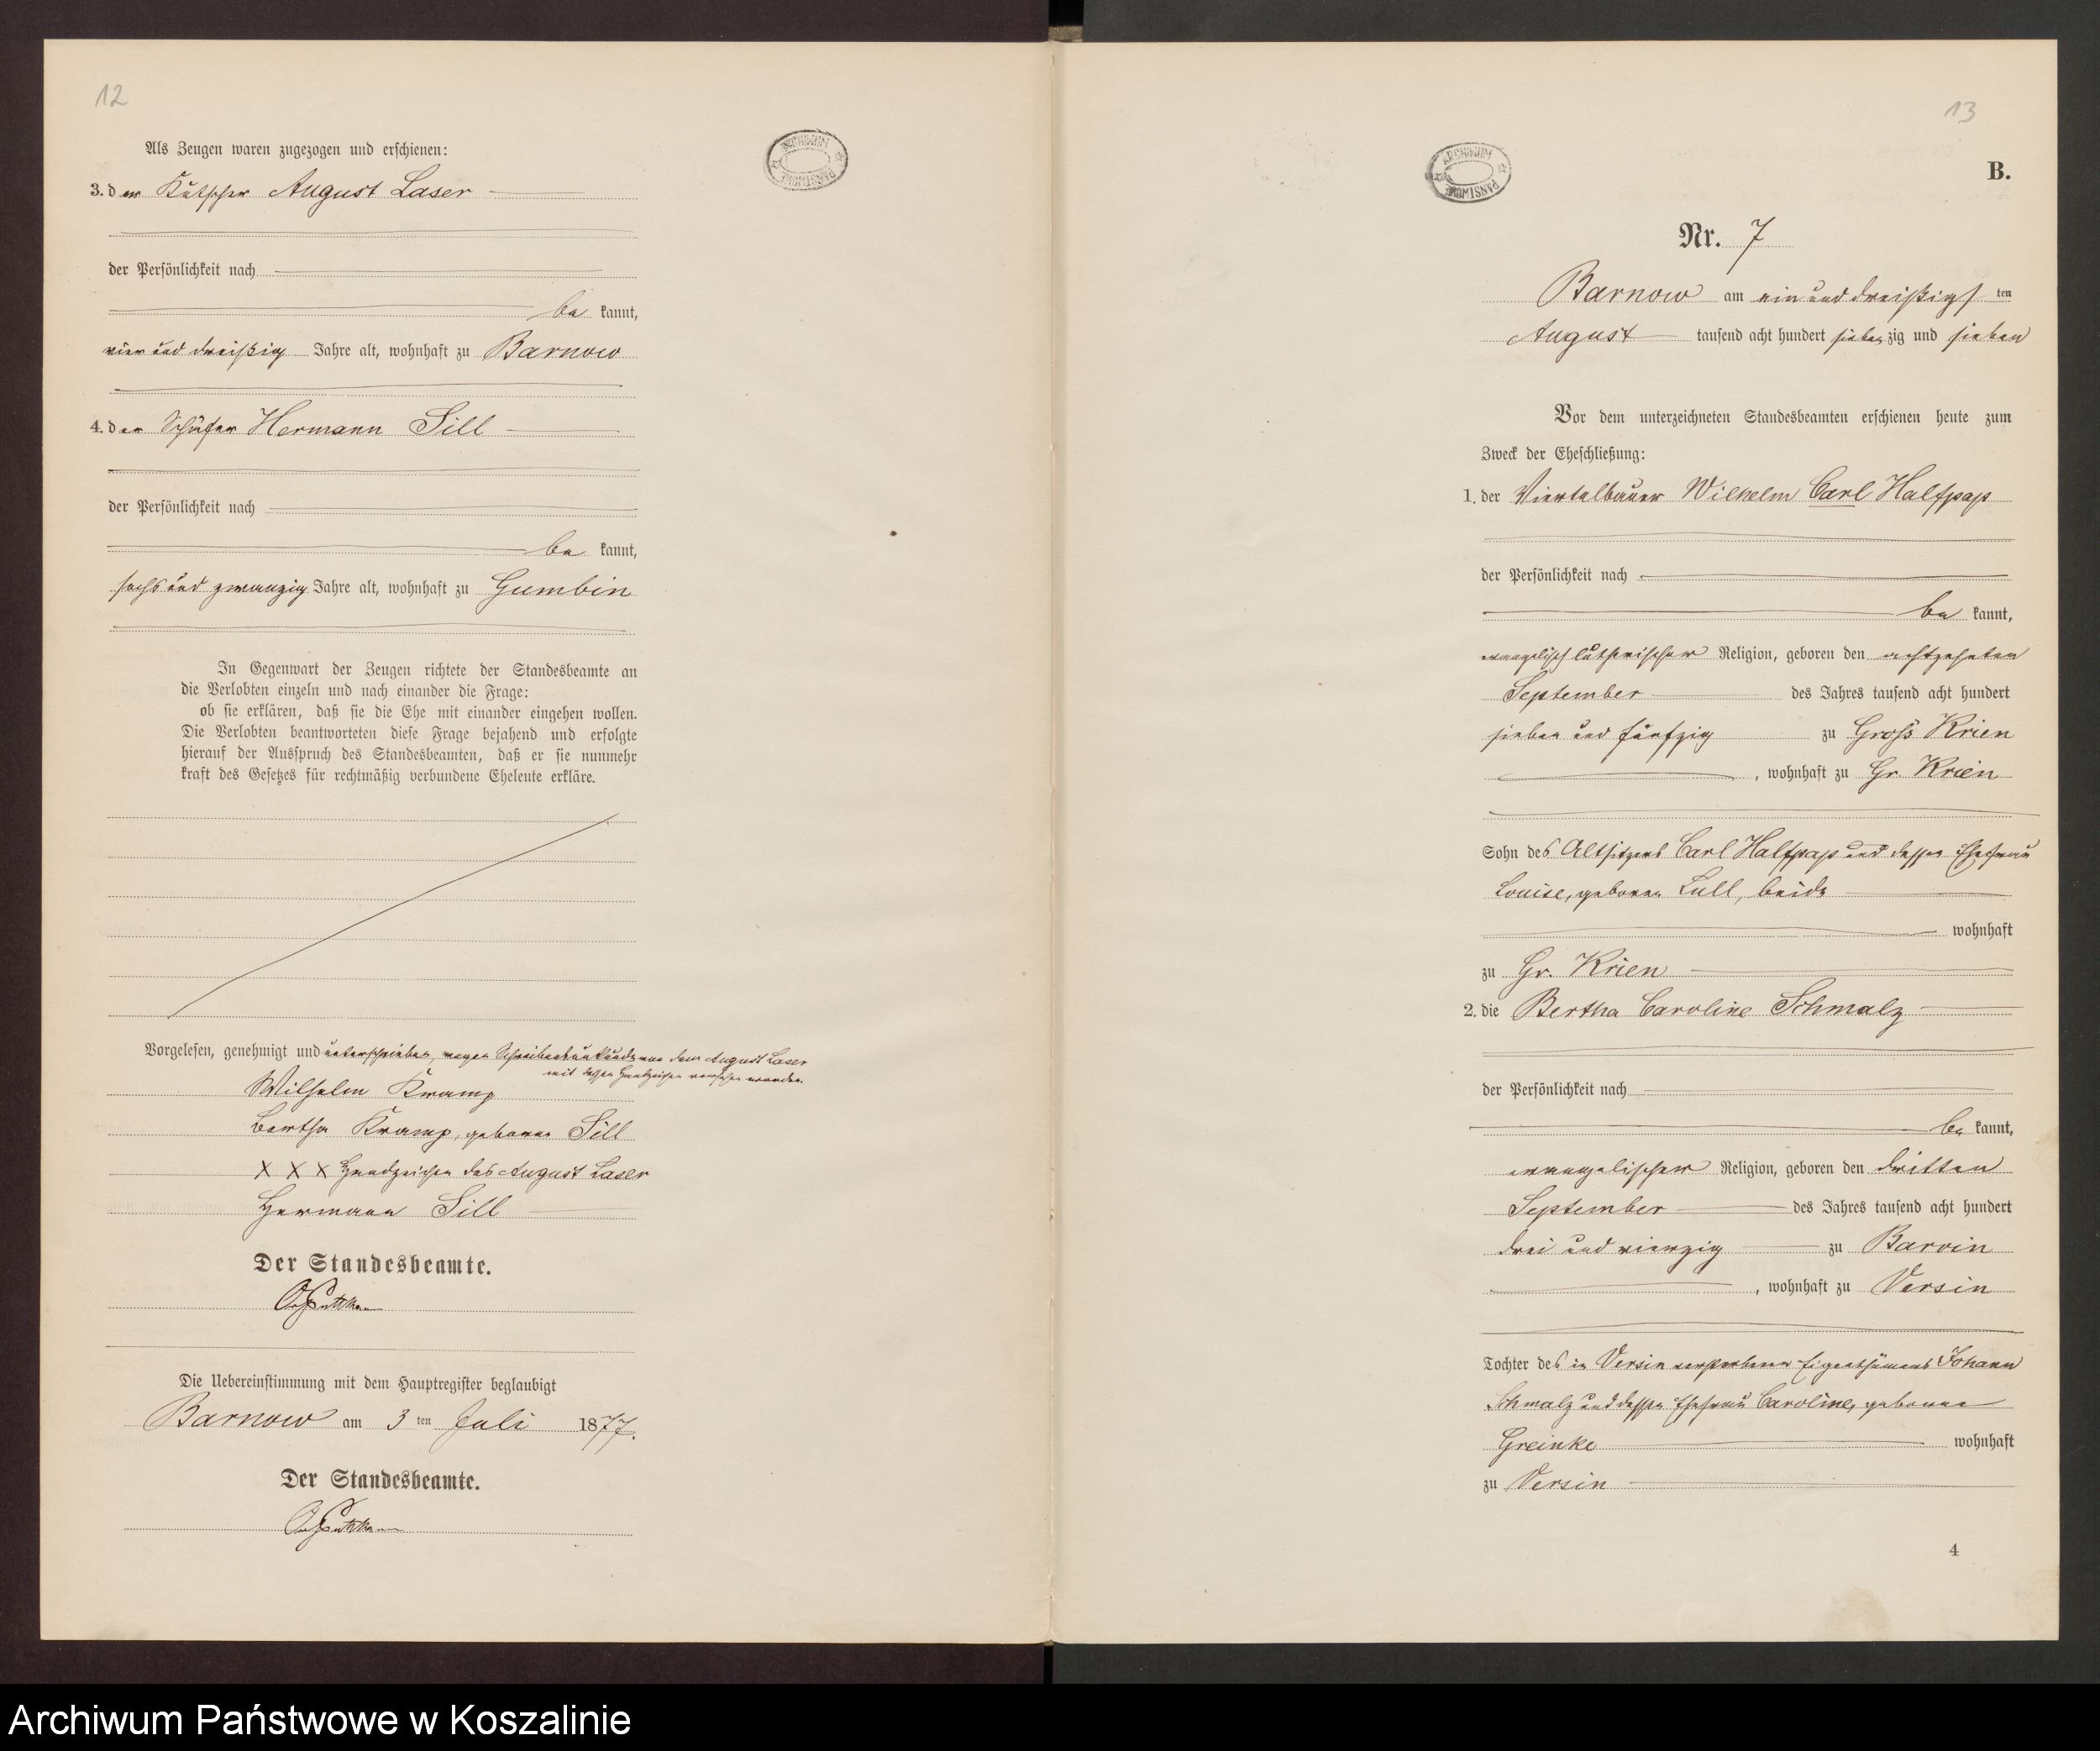 12
Als Zeugen waren zugezogen und erschienen:
3. der Kutscher August Laser
der Persönlichkeit nach
be kannt,
vier und dreißig Jahre alt, wohnhaft zu Barnow
4. der Schäfer Hermann Sill
der Persönlichkeit nach
be kannt,
sechs und zwanzig Jahre alt, wohnhaft zu Gumbin
In Gegenwart der Zeugen richtete der Standesbeamte an
die Verlobten einzeln und nach einander die Frage:
ob sie erklären, daß sie die Ehe mit einander eingehen wollen.
Die Verlobten beantworteten diese Frage bejahend und erfolgte
hierauf der Ausspruch des Standesbeamten, daß er sie nunmehr
kraft des Gesetzes für rechtmäßig verbundene Eheleute erkläre.
Vorgelesen, genehmigt und unterschrieben, wegen Schreibensunkunde von dem August Laser
mit dessen Handzeichen versehen worden.
Wilhelm Kramp
Bertha Kramp, geborene Sill
X X X Handzeichen des August Laser
Hermann Sill
Der Standesbeamte.
Die Uebereinstimmung mit dem Hauptregister beglaubigt
Barnow am 3 ten Juli 1877.
Der Standesbeamte.
ARCHIWUM PAŃSTWOWE
13
B.
ARCHIWUM PAŃSTWOWE
Nr. 7
Barnow am ein und dreißigs ten
August tausend acht hundert sieben zig und sieben
Vor dem unterzeichneten Standesbeamten erschienen heute zum
Zweck der Eheschließung:
1. der Viertelbauer Wilhelm Carl Halfpap
der Persönlichkeit nach
be kannt,
evangelisch lutherischer Religion, geboren den achtzehnten
September des Jahres tausend acht hundert
sieben und fünfzig zu Gross Krien
, wohnhaft zu Gr. Krien
Sohn des Altsitzers Carl Halfpap und dessen Ehefrau
Louise, geboren Lull, beide
wohnhaft
zu Gr. Krien
2. die Bertha Caroline Schmalz
der Persönlichkeit nach
be kannt,
evangelischer Religion, geboren den dritten
September des Jahres tausend acht hundert
drei und vierzig zu Barvin
, wohnhaft zu Versin
Tochter des in Versin verstorbenen Eigenthümers Johann
Schmalz und dessen Ehefrau Caroline, geborene
Greinke wohnhaft
zu Versin
4
Archiwum Państwowe w Koszalinie